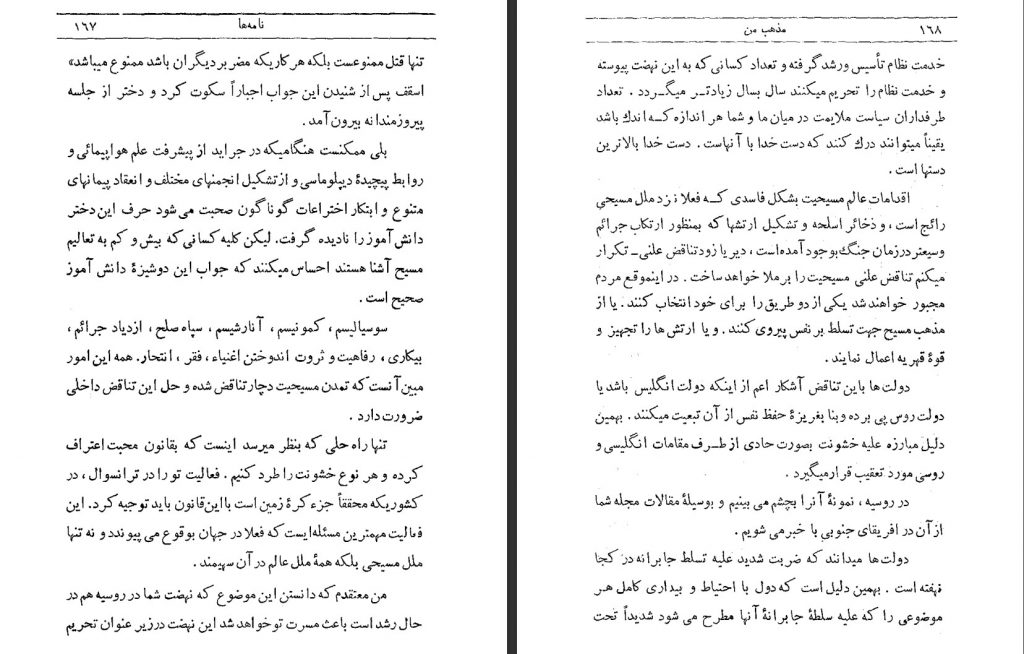 نامه‌ها ۱۶۷
تنها قتل ممنوعست بلکه هر کاریکه مضر بر دیگران باشد ممنوع میباشد»
اسقف پس از شنیدن این جواب اجباراً سکوت کرد و دختر از جلسه
پیروزمندانه بیرون آمد .
بلی ممکنست هنگامیکه در جراید از پیشرفت علم هواپیمائی و
روابط پیچیدهٔ دیپلوماسی و از تشکیل انجمنهای مختلف و انعقاد پیمانهای
متنوع و ابتکار اختراعات گوناگون صحبت می شود حرف این دختر
دانش آموز را نادیده گرفت. لیکن کلیه کسانی که بیش و کم به تعالیم
مسیح آشنا هستند احساس میکنند که جواب این دوشیزهٔ دانش آموز
صحیح است .
سوسیالیسم ، کمونیسم ، آنارشیسم ، سپاه صلح ، ازدیاد جرائم ،
بیکاری ، رفاهیت و ثروت اندوختن اغنیاء ، فقر ، انتحار. همه این امور
مبین آنست که تمدن مسیحیت دچار تناقض شده و حل این تناقض داخلی
ضرورت دارد .
تنها راه حلی که بنظر میرسد اینست که بقانون محبت اعتراف
کرده و هر نوع خشونت را طرد کنیم . فعالیت تو را در ترانسوال ، در
کشوریکه محققاً جزء کرهٔ زمین است با این قانون باید توجیه کرد. این
فعالیت مهمترین مسئله‌ایست که فعلا در جهان بوقوع می پیوندد و نه تنها
ملل مسیحی بلکه همهٔ ملل عالم در آن سهیمند .
من معتقدم که دانستن این موضوع که نهضت شما در روسیه هم در
حال رشد است باعث مسرت تو خواهد شد این نهضت در زیر عنوان تحریم
۱۶۸ مذهب من
خدمت نظام تأسیس و رشد گرفته و تعداد کسانی که به این نهضت پیوسته
و خدمت نظام را تحریم میکنند سال بسال زیادتر میگردد . تعداد
طرفداران سیاست ملایمت در میان ما و شما هر اندازه که اندك باشد
یقیناً میتوانند درك کنند که دست خدا با آنهاست . دست خدا بالاترین
دستها است .
اقدامات عالم مسیحیت بشکل فاسدی که فعلا نزد ملل مسیحی
رائج است ، و ذخائر اسلحه و تشکیل ارتشها که بمنظور ارتکاب جرائم
وسیعتر در زمان جنگ بوجود آمده است ، دیر یا زود تناقض علنی ـ تکرار
میکنم تناقض علنی مسیحیت را برملا خواهد ساخت . در اینموقع مردم
مجبور خواهند شد یکی از دو طریق را برای خود انتخاب کنند . یا از
مذهب مسیح جهت تسلط بر نفس پیروی کنند . و یا ارتش ها را تجهیز و
قوهٔ قهریه اعمال نمایند .
دولت ها باین تناقض آشکار اعم از اینکه دولت انگلیس باشد یا
دولت روس پی برده و بنا بغریزهٔ حفظ نفس از آن تبعیت میکنند . بهمین
دلیل مبارزه علیه خشونت بصورت حادی از طرف مقامات انگلیسی و
روسی مورد تعقیب قرار میگیرد .
در روسیه ، نمونهٔ آنرا بچشم می بینیم و بوسیلهٔ مقالات مجله شما
از آن در افریقای جنوبی با خبر می شویم .
دولت ها میدانند که ضربت شدید علیه تسلط جابرانه در کجا
نهفته است . بهمین دلیل است که دول با احتیاط و بیداری کامل هر
موضوعی را که علیه سلطهٔ جابرانهٔ آنها مطرح می شود شدیداً تحت